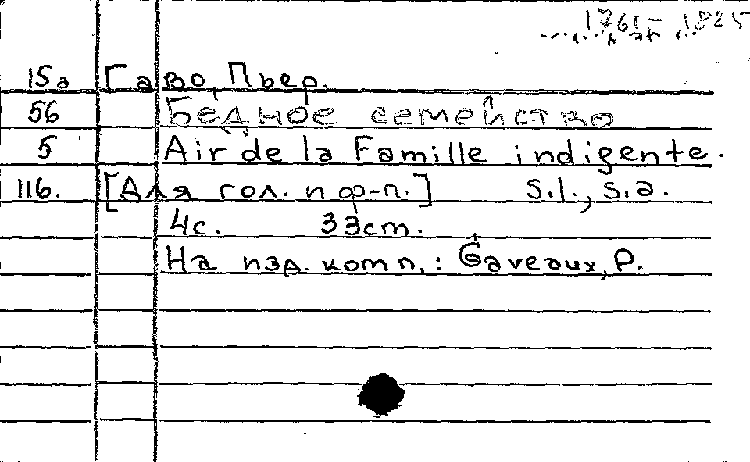 1761-1825
15а Гаво, Пьер.
56 Бедное семейство
5 Air de la Famille indigente.
116. [Для гол. и ф-п.] s.l., s.a.
4с. 33cm.
На изд. комп.: Gaveaux, P.